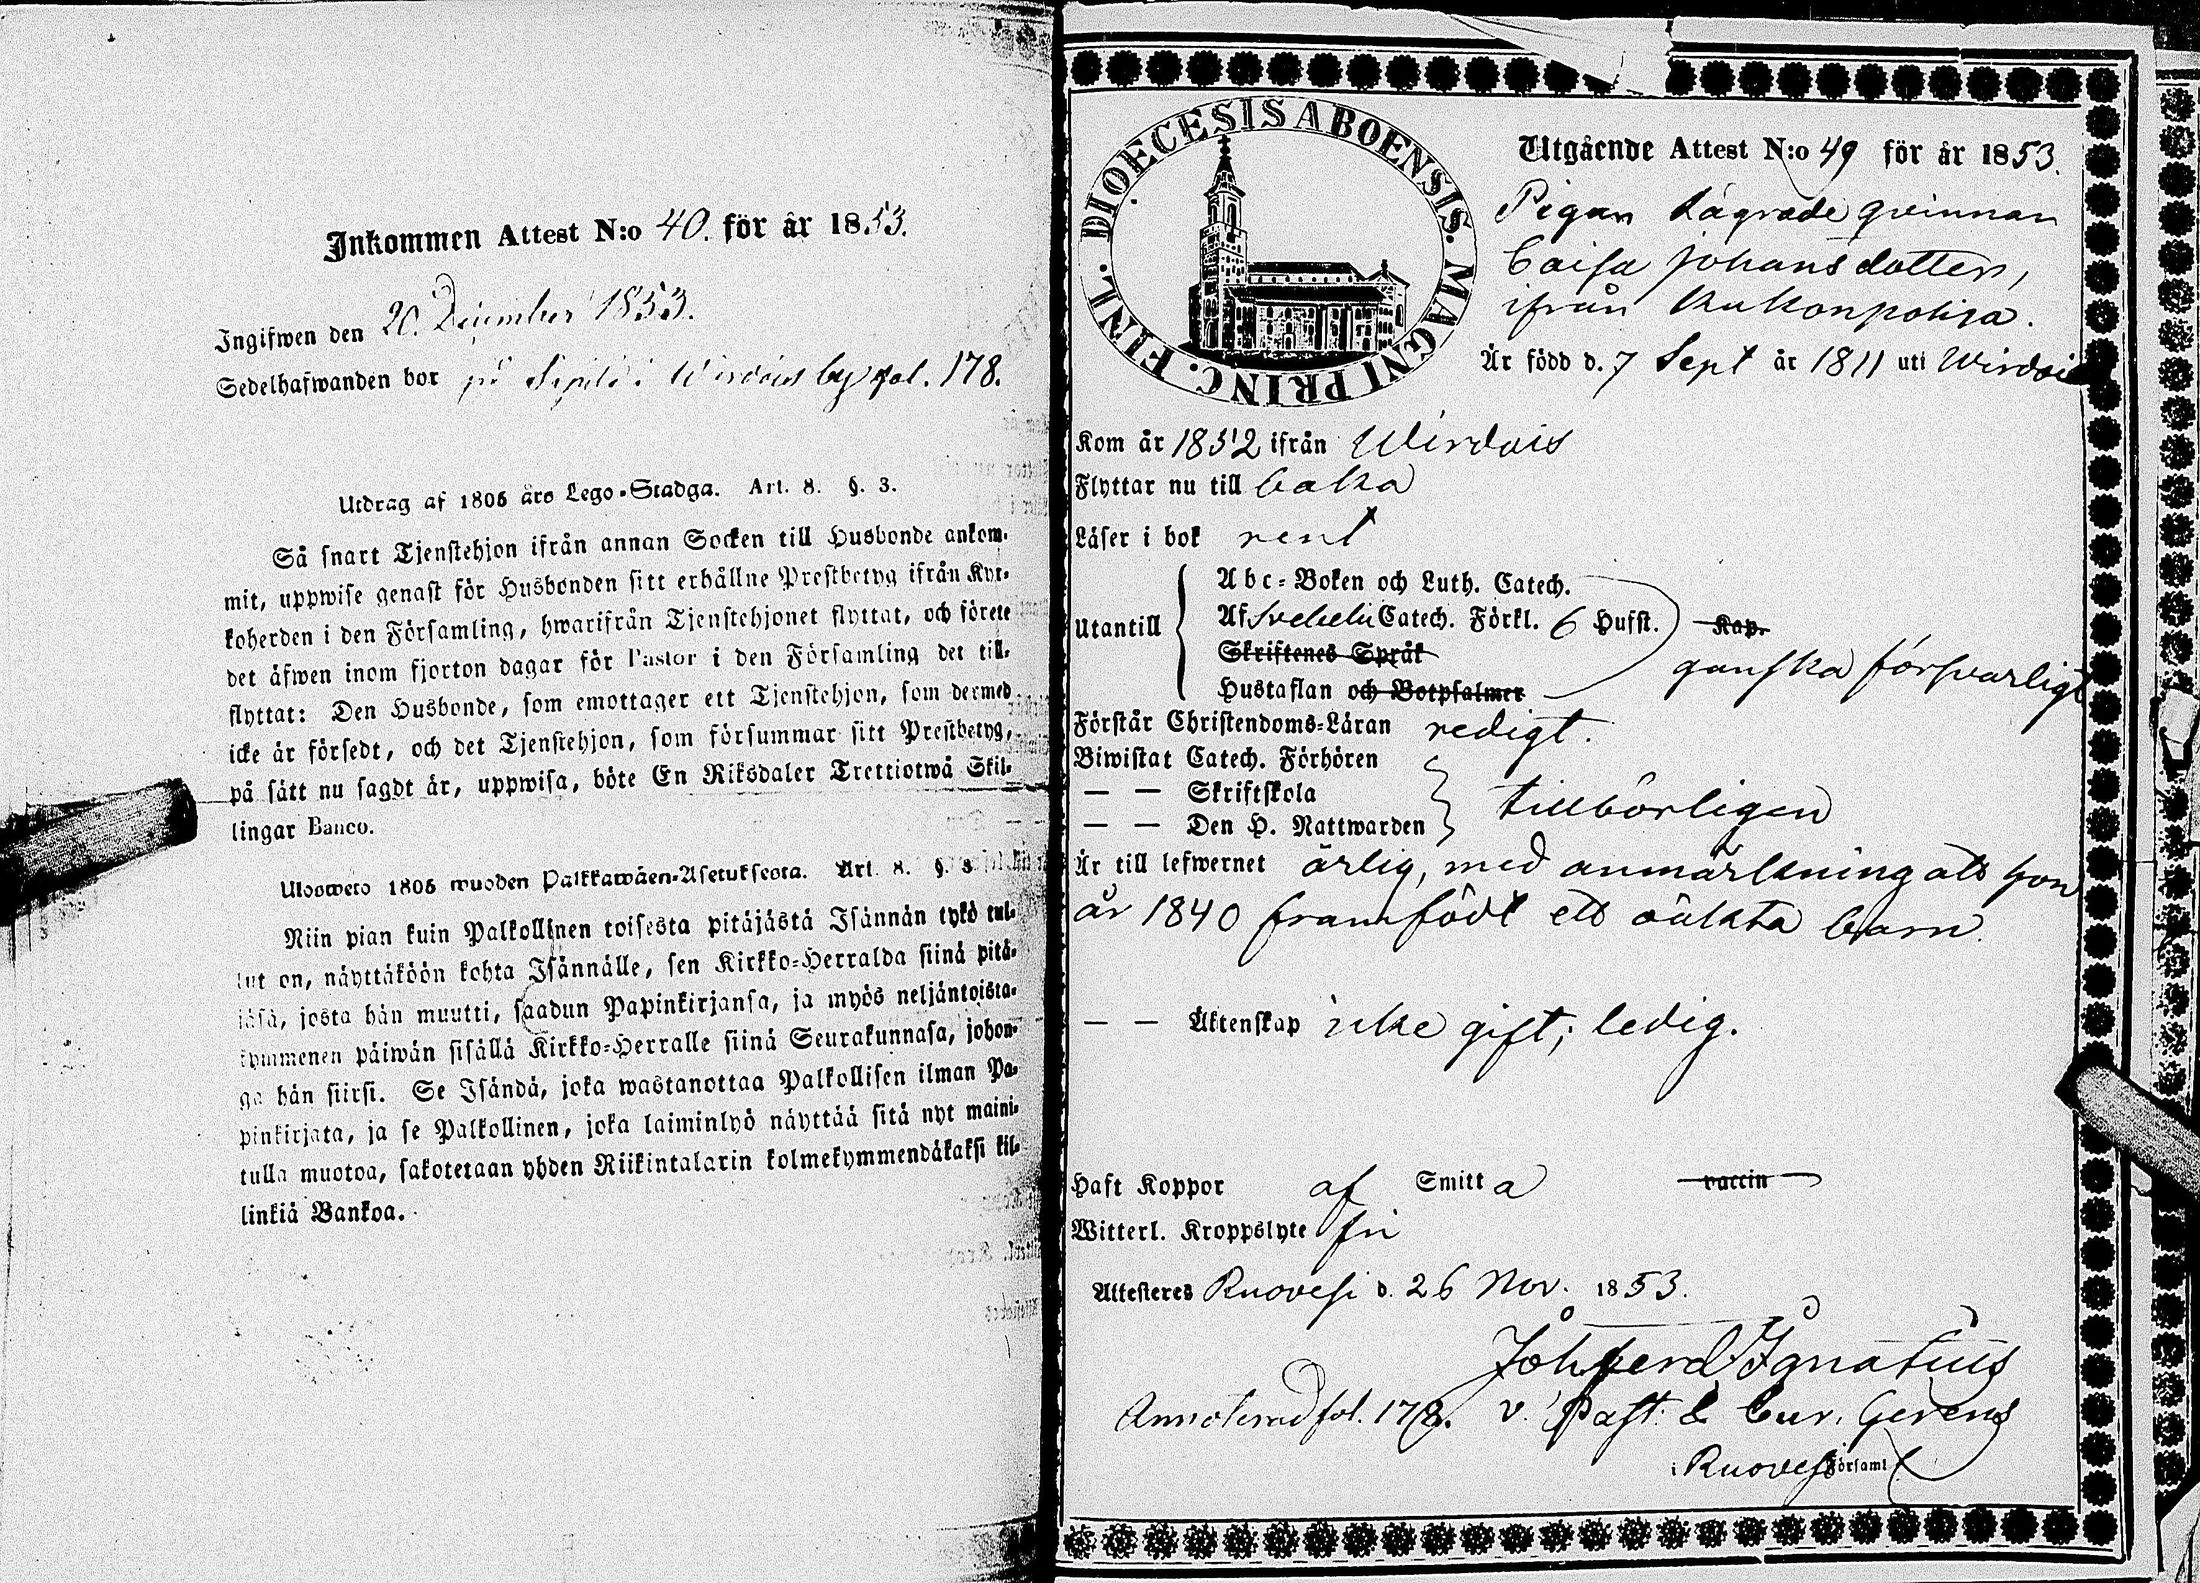 Inkommen Attest N:o 40. för år 1853.
Ingifwen den 20. December 1853.
Sedelhafwanden bor på Sipilä i Wirdois by fol. 178.
Utdrag af 1805 års Lego-Stadga. Art. 8. §. 3.
Så snart Tjenstehjon ifrån annan Socken till Husbonde ankom-
mit, uppwise genast för Husbonden sitt erhållne Prestbetyg ifrån Kyr-
koherden i den Församling, hwarifrån Tjenstehjonet flyttat, och förete
det äfwen inom fjorton dagar för Pastor i den Församling det till-
flyttat: Den Husbonde, som emottager ett Tjenstehjon, som dermed
icke är försedt, och det Tjenstehjon, som försummar sitt Prestbetyg,
på sätt nu sagdt är, uppwisa, böte En Riksdaler Trettiotwå Skil-
lingar Banco.
Ulosweto 1805 wuoden Palkkawäen-Asetuksesta. Art. 8. §. 3
Niin pian kuin Palkollinen toisesta pitäjästä Isännän tykö tul-
lut on, näyttäköön kohta Isännälle, sen Kirkko-Herralda siinä pitä-
jäsä, josta hän muutti, saadun Papinkirjansa, ja myös neljäntoista-
kymmenen päiwän sisällä Kirkko-Herralle siinä Seurakunnasa, johon-
ga hän siirsi. Se Isändä, joka wastanottaa Palkollisen ilman Pa-
pinkirjata, ja se Palkollinen, joka laiminlyö näyttää sitä nyt maini-
tulla muotoa, sakotetaan yhden Riikintalarin kolmekymmendäkaksi kil-
linkiä Bankoa.
DIOECESIS ABOENSIS. MAGNI PRINC. FINL.
Utgående Attest N:o 49 för år 1853.
Pigan Lägrade qvinnan
Caisa Johansdotter,
ifrån Kukonpohja.
Är född d. 7 Sept år 1811 uti Wirdois
Kom år 1852 ifrån Wirdois
Flyttar nu till baka
Läser i bok rent
Utantill
Abc-Boken och Luth. Catech.
Af Svebelii Catech. Förkl. 6 Hufst. Kap.
Skriftenes Språk
ganska försvarligt
Hustaflan och Botpsalmer
Förstår Christendoms-Läran redigt.
Biwistat Catech. Förhören
— — Skriftskola
tillbörligen
— — Den H. Nattwarden
Är till lefwernet ärlig, med anmärkning att hon
år 1840 framfödt ett oäkta barn.
— — Äktenskap icke gift; ledig.
Haft Koppor af Smitta vaccin
Witterl. Kroppslyte fri
Attesteres Ruovesi d. 26 Nov. 1853.
Ignatius
Annoterad fol. 178. v. Past. & Cur. Gerens
i Ruovesi Församl